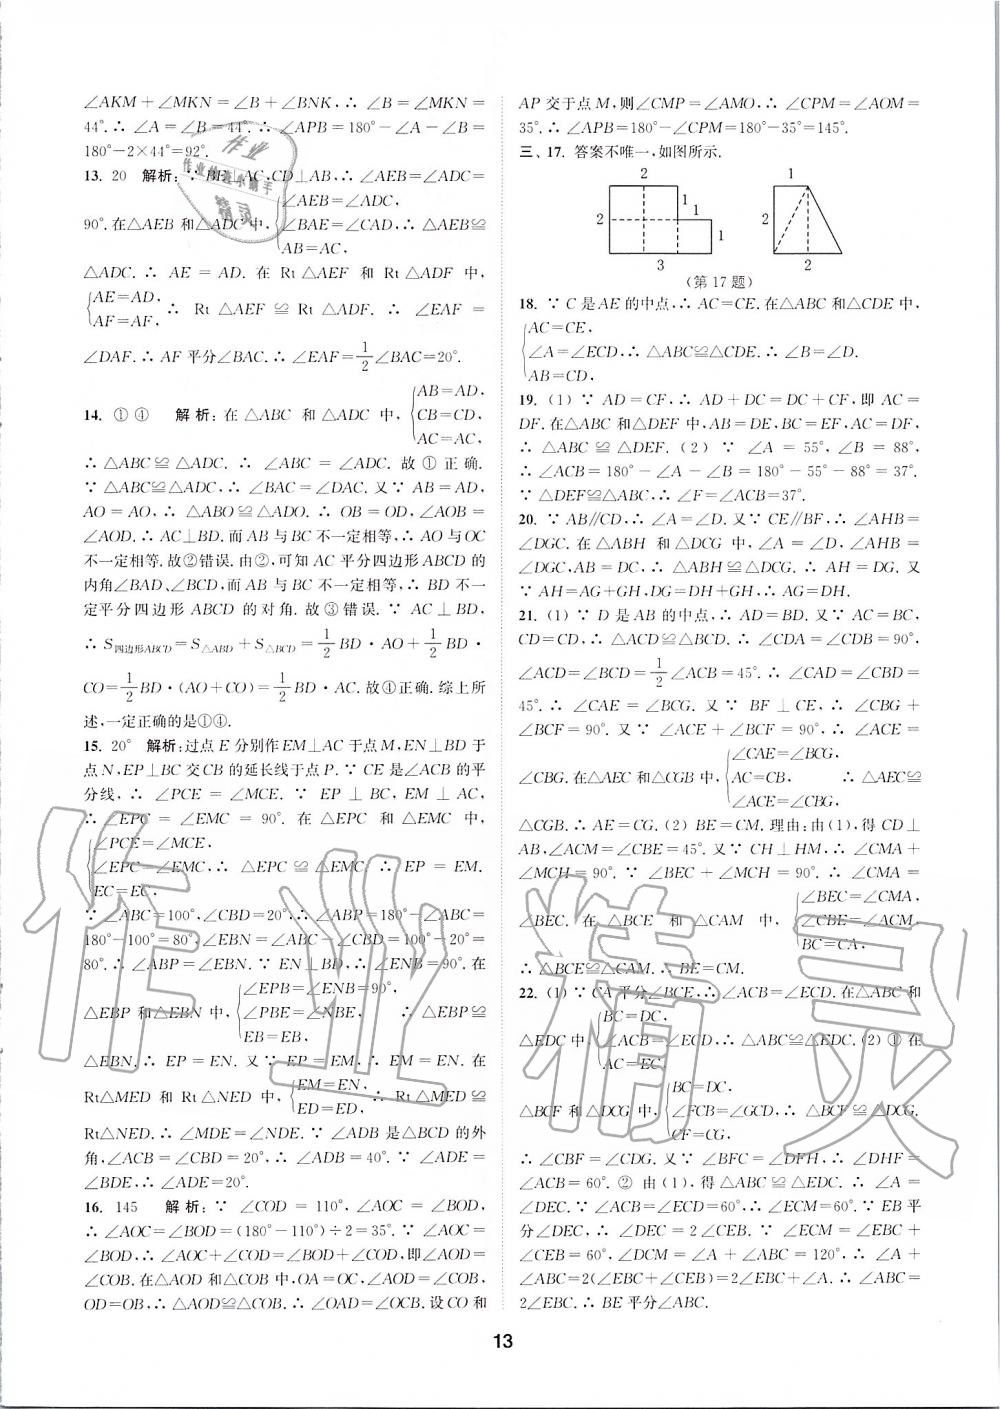 ∠AKM＋∠MKN＝∠B＋∠BNK,∴ ∠B＝∠MKN＝
44°.∴ ∠A＝∠B＝44°.∴ ∠APB＝180°－∠A－∠B＝
180°－2×44°＝92°.
13. 20 解析:∵ BE⊥AC,CD⊥AB,∴ ∠AEB＝∠ADC＝
∠AEB＝∠ADC,
90°.在△AEB 和△ADC 中, ∠BAE＝∠CAD,∴ △AEB≌
AB＝AC,
△ADC.∴ AE＝AD.在 Rt△AEF 和 Rt△ADF 中,
AE＝AD,
AF＝AF, ∴ Rt△AEF≌Rt△ADF.∴ ∠EAF＝
∠DAF.∴ AF 平分∠BAC.∴ ∠EAF＝1/2∠BAC＝20°.
AB＝AD,
14. ①④ 解析:在△ABC 和△ADC 中, CB＝CD,
AC＝AC,
∴ △ABC≌△ADC.∴ ∠ABC＝∠ADC.故①正确.
∵ △ABC≌△ADC,∴ ∠BAC＝∠DAC.又∵ AB＝AD,
AO＝AO,∴ △ABO≌△ADO.∴ OB＝OD,∠AOB＝
∠AOD.∴ AC⊥BD.而 AB 与 BC 不一定相等,∴ AO 与 OC
不一定相等.故②错误.由②,可知 AC 平分四边形 ABCD 的
内角∠BAD、∠BCD,而 AB 与 BC 不一定相等,∴ BD 不一
定平分四边形 ABCD 的对角.故③错误.∵ AC⊥BD,
∴ S四边形ABCD＝S△ABD＋S△BCD＝1/2BD·AO＋1/2BD·
CO＝1/2BD·(AO＋CO)＝1/2BD·AC.故④正确.综上所
述,一定正确的是①④.
15. 20° 解析:过点 E 分别作 EM⊥AC 于点 M,EN⊥BD 于
点 N,EP⊥BC 交 CB 的延长线于点 P.∵ CE 是∠ACB 的平
分线,∴ ∠PCE＝∠MCE.∵ EP⊥BC,EM⊥AC,
∴ ∠EPC＝∠EMC＝90°.在△EPC 和△EMC 中,
∠PCE＝∠MCE,
∠EPC＝∠EMC,∴ △EPC≌△EMC.∴ EP＝EM.
EC＝EC,
∵ ∠ABC＝100°,∠CBD＝20°,∴ ∠ABP＝180°－∠ABC＝
180°－100°＝80°,∠EBN＝∠ABC－∠CBD＝100°－20°＝
80°.∴ ∠ABP＝∠EBN.∵ EN⊥BD,∴ ∠ENB＝90°.在
∠EPB＝∠ENB＝90°,
△EBP 和△EBN 中, ∠PBE＝∠NBE, ∴ △EBP≌
EB＝EB,
△EBN.∴ EP＝EN.又∵ EP＝EM,∴ EM＝EN.在
Rt△MED 和 Rt△NED 中, EM＝EN, ∴ Rt△MED≌
ED＝ED.
Rt△NED.∴ ∠MDE＝∠NDE.∵ ∠ADB 是△BCD 的外
角,∠ACB＝∠CBD＝20°,∴ ∠ADB＝40°.∵ ∠ADE＝
∠BDE,∴ ∠ADE＝20°.
16. 145 解析:∵ ∠COD＝110°,∠AOC＝∠BOD,
∴ ∠AOC＝∠BOD＝(180°－110°)÷2＝35°.∵ ∠AOC＝
∠BOD,∴ ∠AOC＋∠COD＝∠BOD＋∠COD,即∠AOD＝
∠COB.在△AOD 和△COB 中,OA＝OC,∠AOD＝∠COB,
OD＝OB,∴ △AOD≌△COB.∴ ∠OAD＝∠OCB.设 CO 和
AP 交于点 M,则∠CMP＝∠AMO,∴ ∠CPM＝∠AOM＝
35°.∴ ∠APB＝180°－∠CPM＝180°－35°＝145°.
三、17. 答案不唯一,如图所示.
2
1
2
1
1
3
1
2
2
(第 17 题)
18. ∵ C 是 AE 的中点,∴ AC＝CE.在△ABC 和△CDE 中,
AC＝CE,
∠A＝∠ECD,∴ △ABC≌△CDE.∴ ∠B＝∠D.
AB＝CD,
19. (1) ∵ AD＝CF,∴ AD＋DC＝DC＋CF,即 AC＝
DF.在△ABC 和△DEF 中,AB＝DE,BC＝EF,AC＝DF,
∴ △ABC≌△DEF. (2) ∵ ∠A＝55°,∠B＝88°,
∴ ∠ACB＝180°－∠A－∠B＝180°－55°－88°＝37°.
∵ △DEF≌△ABC,∴ ∠F＝∠ACB＝37°.
20. ∵ AB∥CD,∴ ∠A＝∠D.又∵ CE∥BF,∴ ∠AHB＝
∠DGC.在△ABH 和△DCG 中,∠A＝∠D,∠AHB＝
∠DGC,AB＝DC,∴ △ABH≌△DCG.∴ AH＝DG.又
∵ AH＝AG＋GH,DG＝DH＋GH,∴ AG＝DH.
21. (1) ∵ D 是 AB 的中点,∴ AD＝BD.又∵ AC＝BC,
CD＝CD,∴ △ACD≌△BCD.∴ ∠CDA＝∠CDB＝90°,
∠ACD＝∠BCD＝1/2∠ACB＝45°.∴ ∠CAD＝∠CBD＝
45°.∴ ∠CAE＝∠BCG.又∵ BF⊥CE,∴ ∠CBG＋
∠BCF＝90°.又∵ ∠ACE＋∠BCF＝90°,∴ ∠ACE＝
∠CAE＝∠BCG,
∠CBG.在△AEC 和△CGB 中, AC＝CB, ∴ △AEC≌
∠ACE＝∠CBG,
△CGB.∴ AE＝CG.(2) BE＝CM.理由:由(1),得 CD⊥
AB,∠ACM＝∠CBE＝45°.又∵ CH⊥HM,∴ ∠CMA＋
∠MCH＝90°.∵ ∠BEC＋∠MCH＝90°,∴ ∠CMA＝
∠BEC＝∠CMA,
∠BEC.在△BCE 和△CAM 中, ∠CBE＝∠ACM,
BC＝CA,
∴ △BCE≌△CAM.∴ BE＝CM.
22. (1) ∵ CA 平分∠BCE,∴ ∠ACB＝∠ECD.在△ABC 和
BC＝DC,
△EDC 中, ∠ACB＝∠ECD,∴ △ABC≌△EDC. (2) ① 在
AC＝EC,
BC＝DC,
△BCF 和△DCG 中, ∠FCB＝∠GCD,∴ △BCF≌△DCG.
CF＝CG,
∴ ∠CBF＝∠CDG.又∵ ∠BFC＝∠DFH,∴ ∠DHF＝
∠ACB＝60°. ② 由(1),得△ABC≌△EDC.∴ ∠A＝
∠DEC.∵ ∠ACB＝∠ECD＝60°,∴ ∠ECM＝60°.∵ EB 平
分∠DEC,∴ ∠DEC＝2∠CEB.∵ ∠ECM＝∠EBC＋
∠CEB＝60°,∠DCM＝∠A＋∠ABC＝120°,∴ ∠A＋
∠ABC＝2(∠EBC＋∠CEB)＝2∠EBC＋∠A.∴ ∠ABC＝
2∠EBC.∴ BE 平分∠ABC.
13
作业
作业的逆小助手
精灵
作业精灵